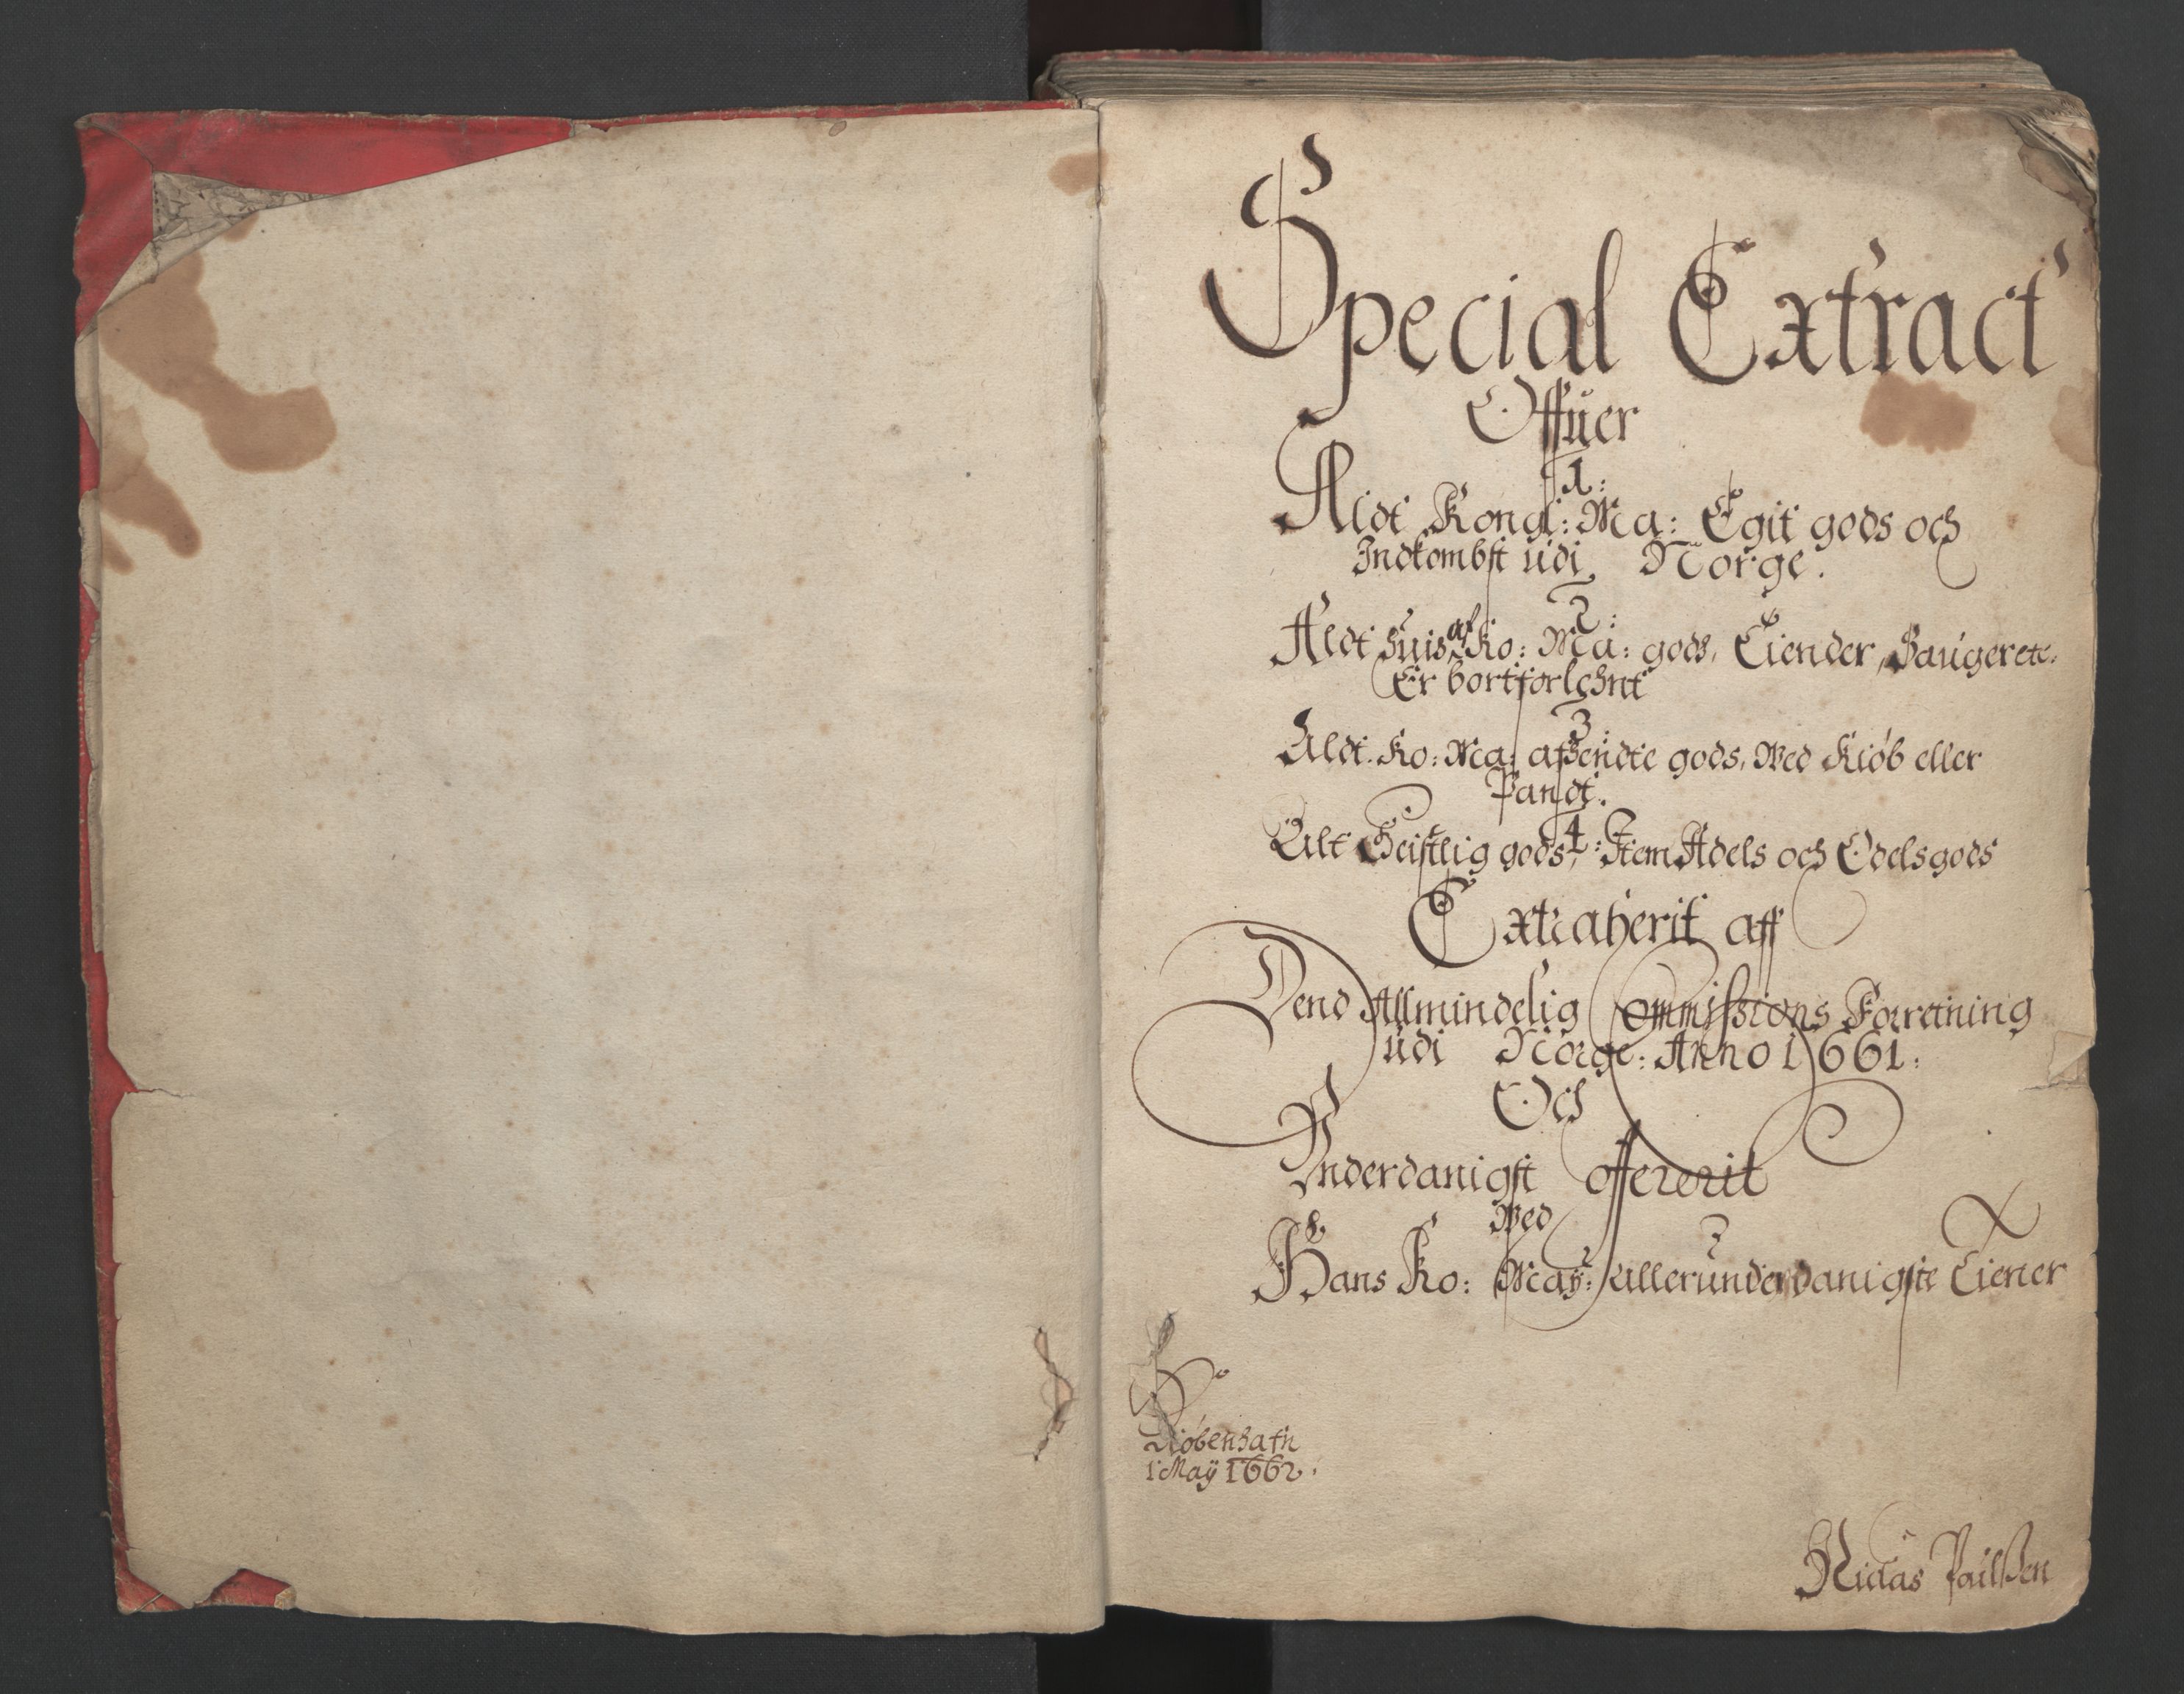 Special Extract
Offuer
1:
Aldt Kongl: Ma: Egit gods och
Indkombst udi Norge.
2:
Aldt huis af Ko: Ma: gods, Tiender, Bauger etc:
Er bortforlehnt
3:
Aldt Ko: Ma: afhendte gods, Wed Kiøb eller
Pandt.
4:
Alt Geistlig gods, Item Adels och Odelsgods
Extraherit aff
Dend Allmindelig Commissions Forretning
udi Norge: Anno 1661:
Och
Underdanigst offererit
Wed
Hans Ko: May: allerunderdanigste Tiener
Kiøbenhafn
1 Maÿ 1662.
Niclas Paulsen